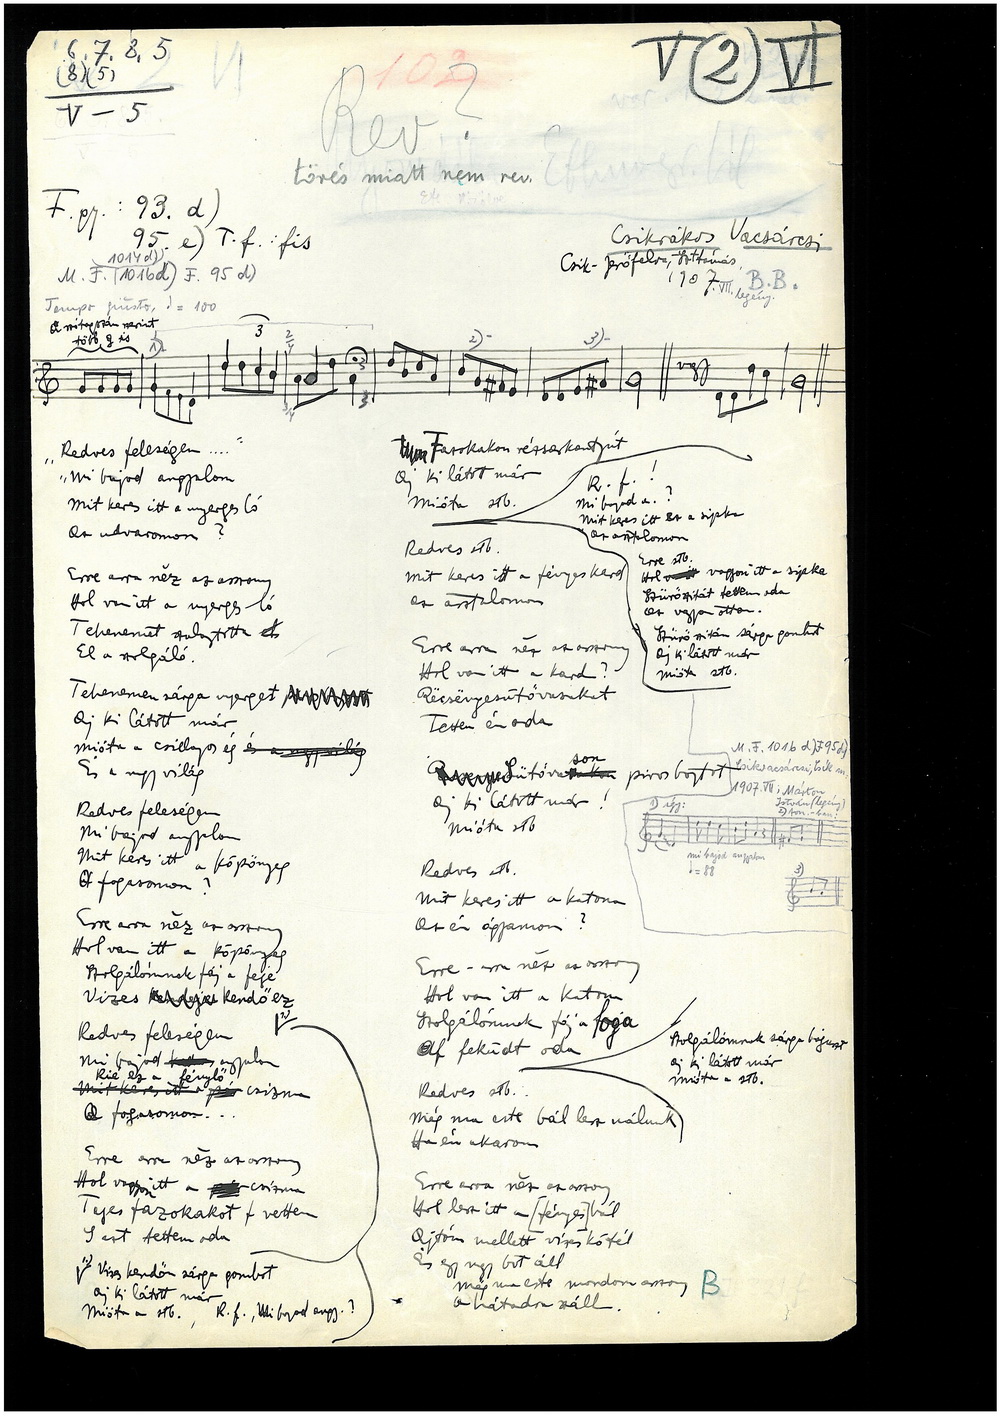 6, 7, 8, 5
(8)(5)
V – 5
103
V (2) VI
Rev?
törés miatt nem rev.
F. gy.: 93. d)
95. e) T. f.: fis
1014 d)
M. F. (1016d) F. 95 d)
Csikrákos Vacsárcsi
1907. VII. B. B.
legény.
Tempo giusto, ♩ = 100
több g is
1)
3
2/4
3/4
2)-
3)-
vagy
"Kedves feleségem ...."
"Mi bajod angyalom
Mit keres itt a nyerges ló
Az udvaromon ?
Erre arra néz az asszony
Hol van itt a nyerges ló
Tehenemet
El a szolgáló.
Tehenemen sárga nyerget
Aj ki látott már
mióta a csillagos ég és a nagyvilág
És a nagy világ
Kedves feleségem
Mi bajod angyalom
Mit keres itt a köpönyeg
A fogasomon ?
Erre arra néz az asszony
Hol van itt a köpönyeg
Szolgálómnak fáj a feje
Vizes kendő ez
Kedves feleségem
Mi bajod angyalom
Kié ez a fénylő
Mit keres itt a csizma
A fogasomon...
Erre arra néz az asszony
Hol vagyon itt a csizma
Tejes fazokakot vettem
S azt tettem oda
Vizes kendőn sárga gombot
Aj ki látott már
Mióta a stb., K. f., Mi bajod angy.?
Fazokakon rézsarkantyút
Aj ki látott már
Mióta stb.
Kedves stb.
Mit keres itt a fényes kard
az asztalomon
Erre arra néz az asszony
Hol van itt a kard?
Pecsenyesütővasakat
Tettem én oda
Sütővason piros bojtot
Aj ki látott már!
Mióta stb
Kedves stb.
Mit keres itt a katona
Az én ágyamon?
Erre-arra néz az asszony
Hol van itt a katona
Szolgálómnak fáj a foga
Az feküdt oda
Kedves stb..
Még ma este bál lesz nálunk
Ha én akarom
Erre arra néz az asszony
Hol lesz itt a [fényes] bál
Ajtóm mellett vizes kötél
És egy nagy bot áll
Még ma este mondom asszony
A hátadra száll.
K. f.!
Mi bajod a.?
Mit keres itt ez a sipka
Az asztalomon
Erre stb.
Hol vagyon itt a sipka
Szürőszitát tettem oda
Az vagyon ottan.
Szürőszitán sárga gombot
Aj ki látott már
Mióta stb.
M. F. 1016 d) F 95d)
Csikvacsárcsi, Csik m.
1907. VII, Márton
István (legény)
1) így:
mi bajod angyalom
♩ = 88
3)
Szolgálómnak sárga bajuszt
Aj ki látott már
Mióta a stb.
B